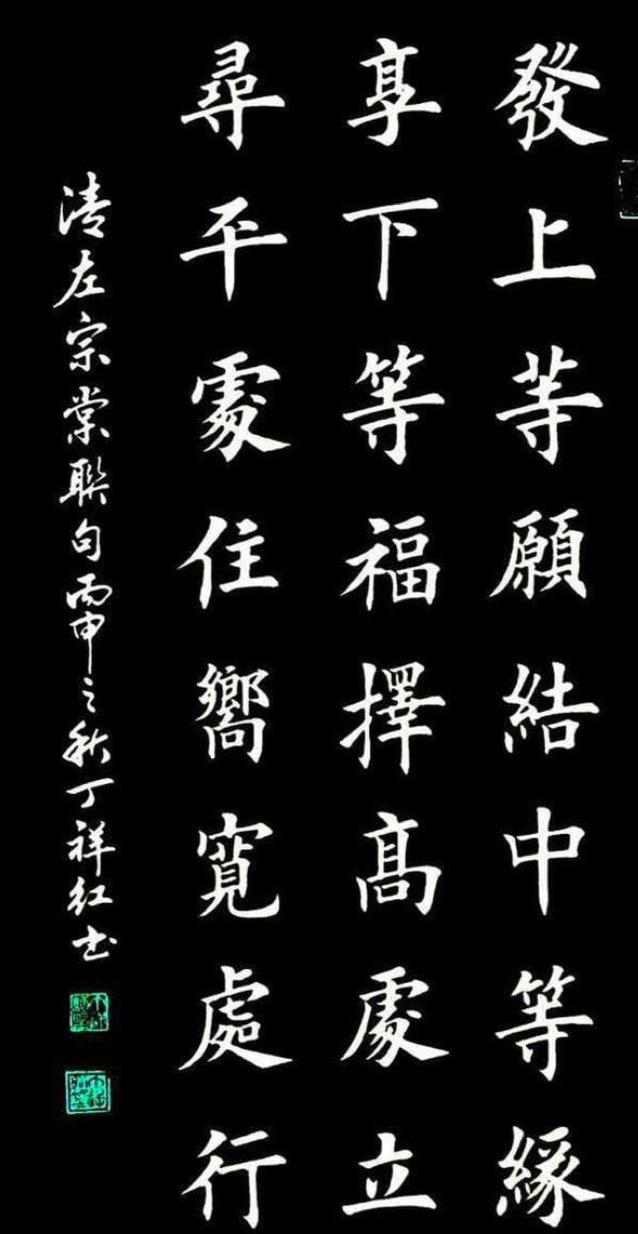 發上等願結中等緣
享下等福擇高處立
尋平處住嚮寬處行
清左宗棠聯句丙申之秋丁祥红书